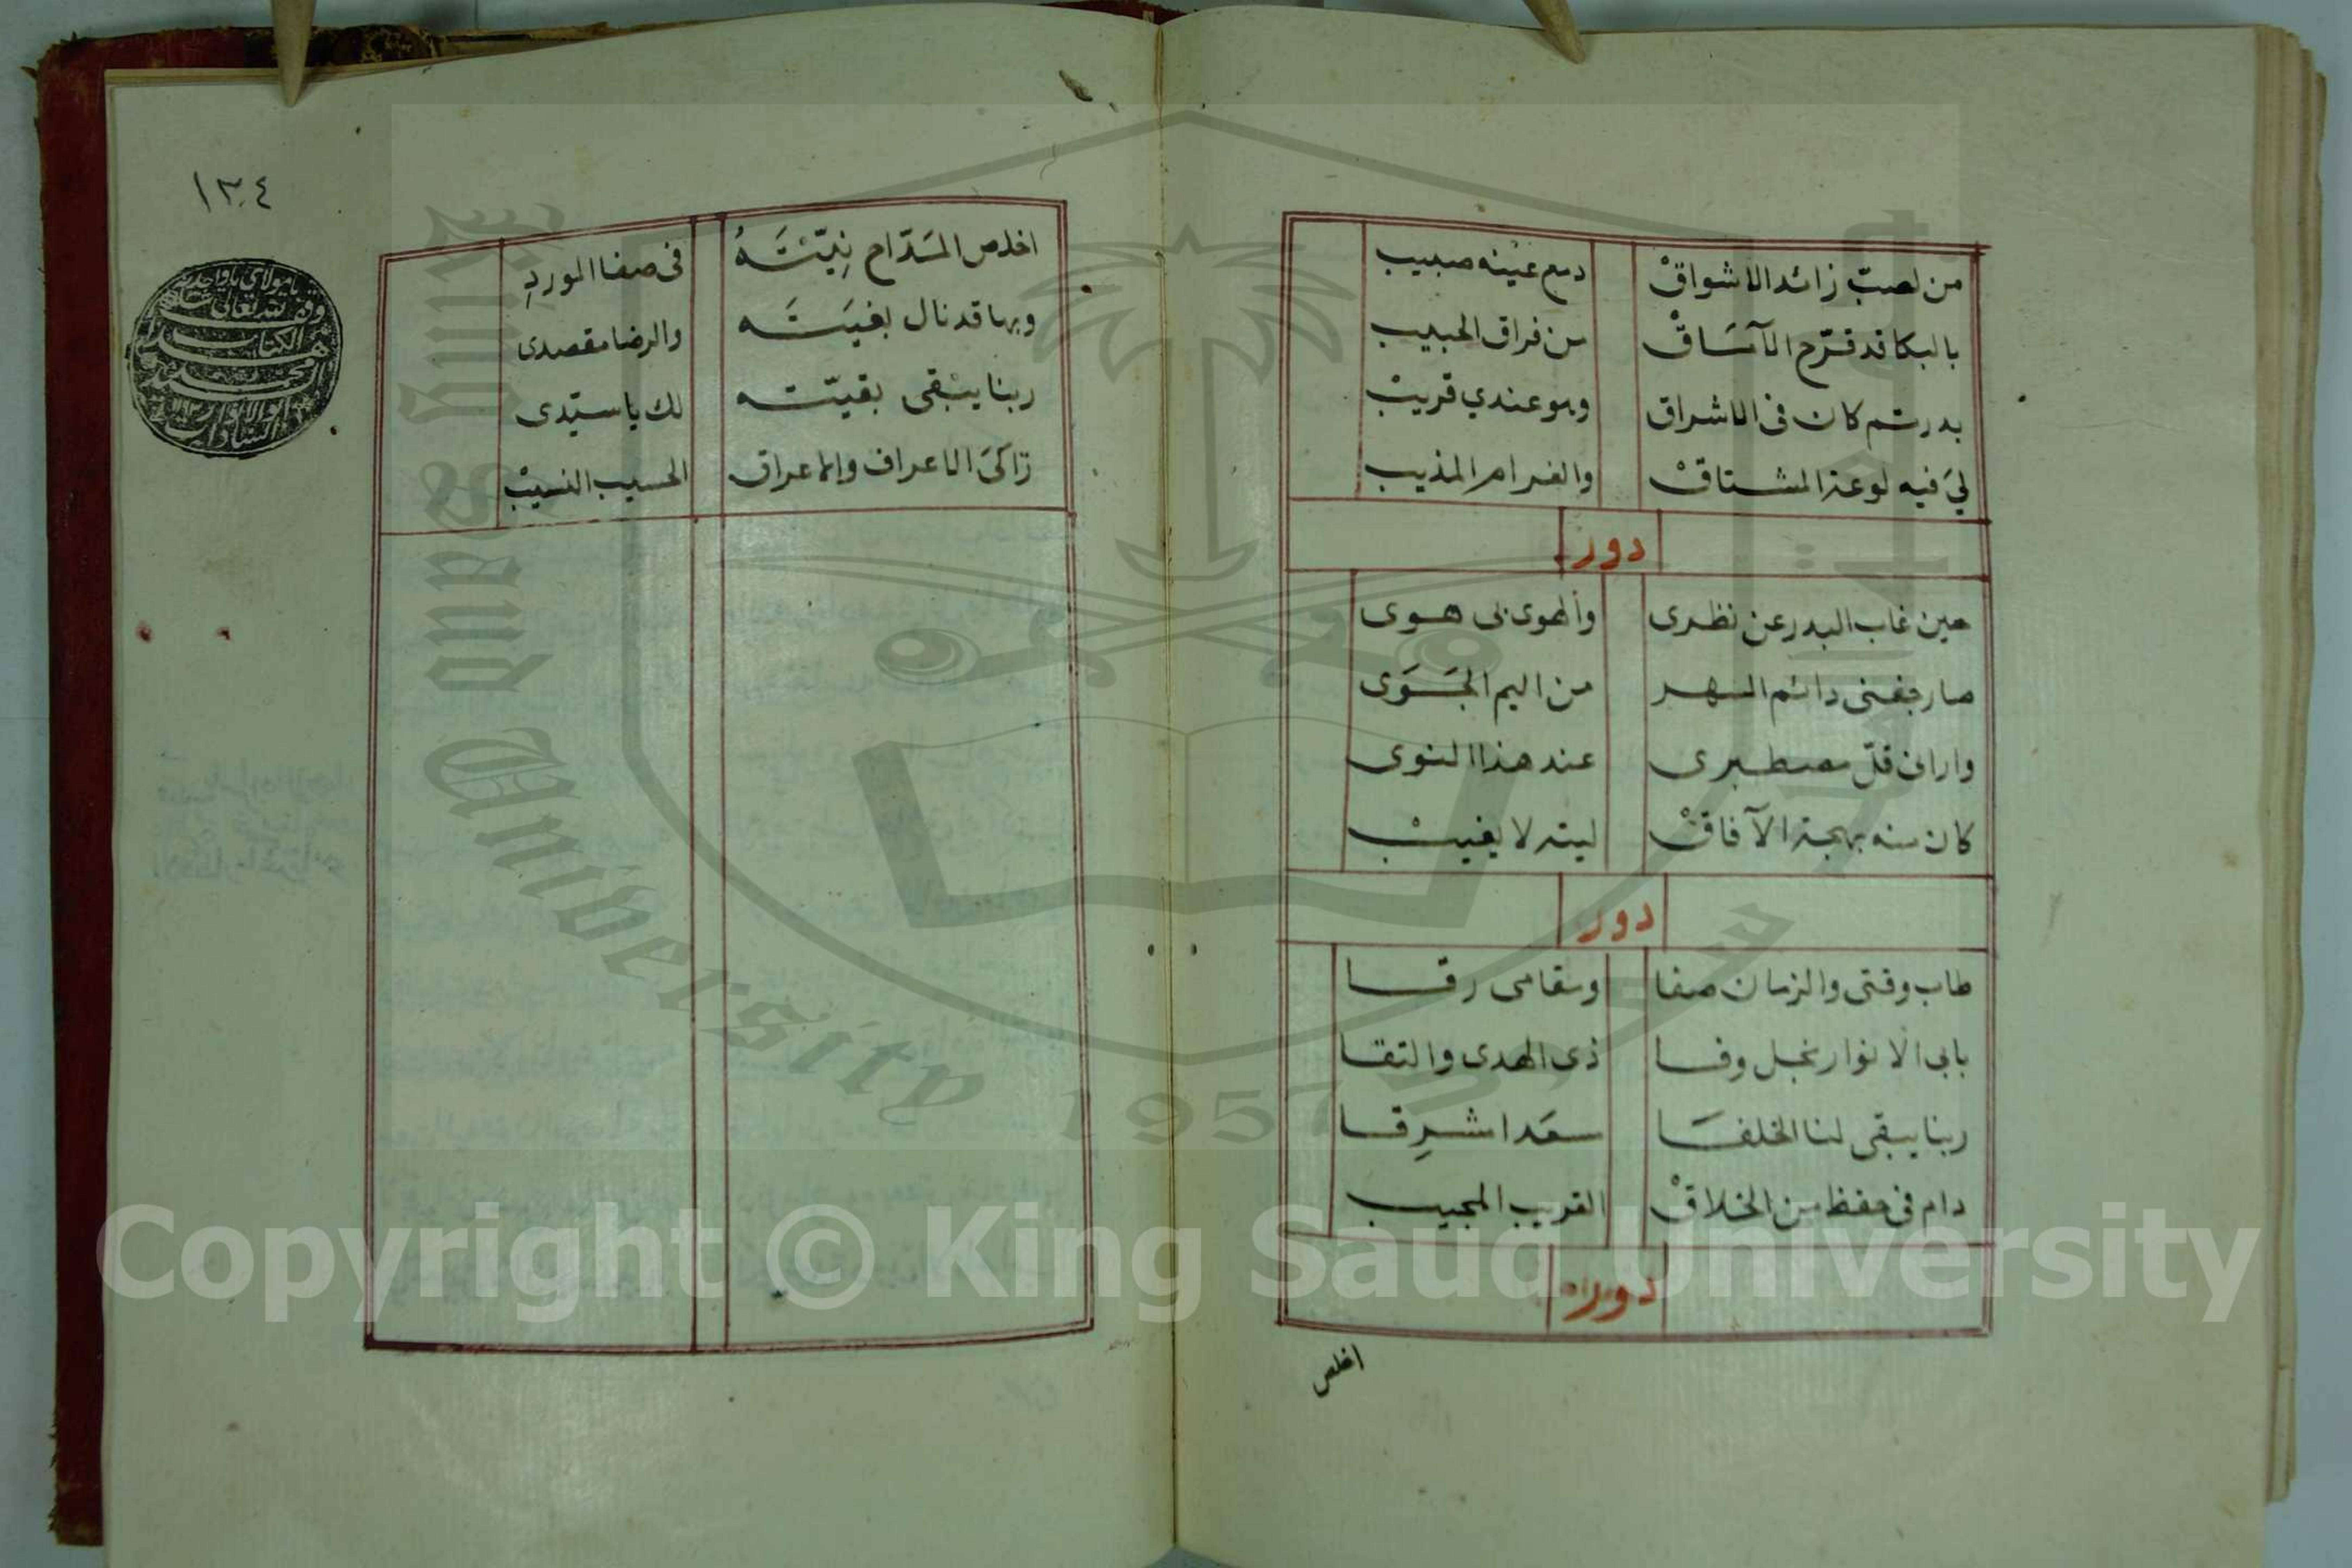 من لصبّ زائد الاشواقْ دمع عينه صبيب
بالبكا قد قرّح الآمَاقْ من فراق الحبيب
بدر تم كان فى الاشراق وهو عندي قريبْ
ليَ فيه لوعة المشتاقْ والغرام المذيب
دور
حين غاب البدر عن نظرى والهوى بى هوى
صار جفنى دائم السهر من اليم الجَوَى
وارانى قلّ مصطبرى عند هذا النوى
كان منه بهجة الآفاقْ ليته لا يغيبْ
دور
طاب وقتى والزمان صفا ومقامى رقا
بابى الانوار نجل وفا ذى الهدى والتقا
ربنا يبقى لنا الخلفَا سعَد اشرِقا
دام فى حفظ من الخلاقْ القريب المجيب
دور
اخلص
١٣٤
اخلص المَدّاح نِيّتَهُ فى صفا الموردِ
وبها قد نال بغيَتَه والرضا مقصدى
ربنا يبْقى بقيّته لك يا سيّدى
زاكىَ الاعراف والاعراق الحسيب النسيبْ
Copyright © King Saud University
King Saud University
1957